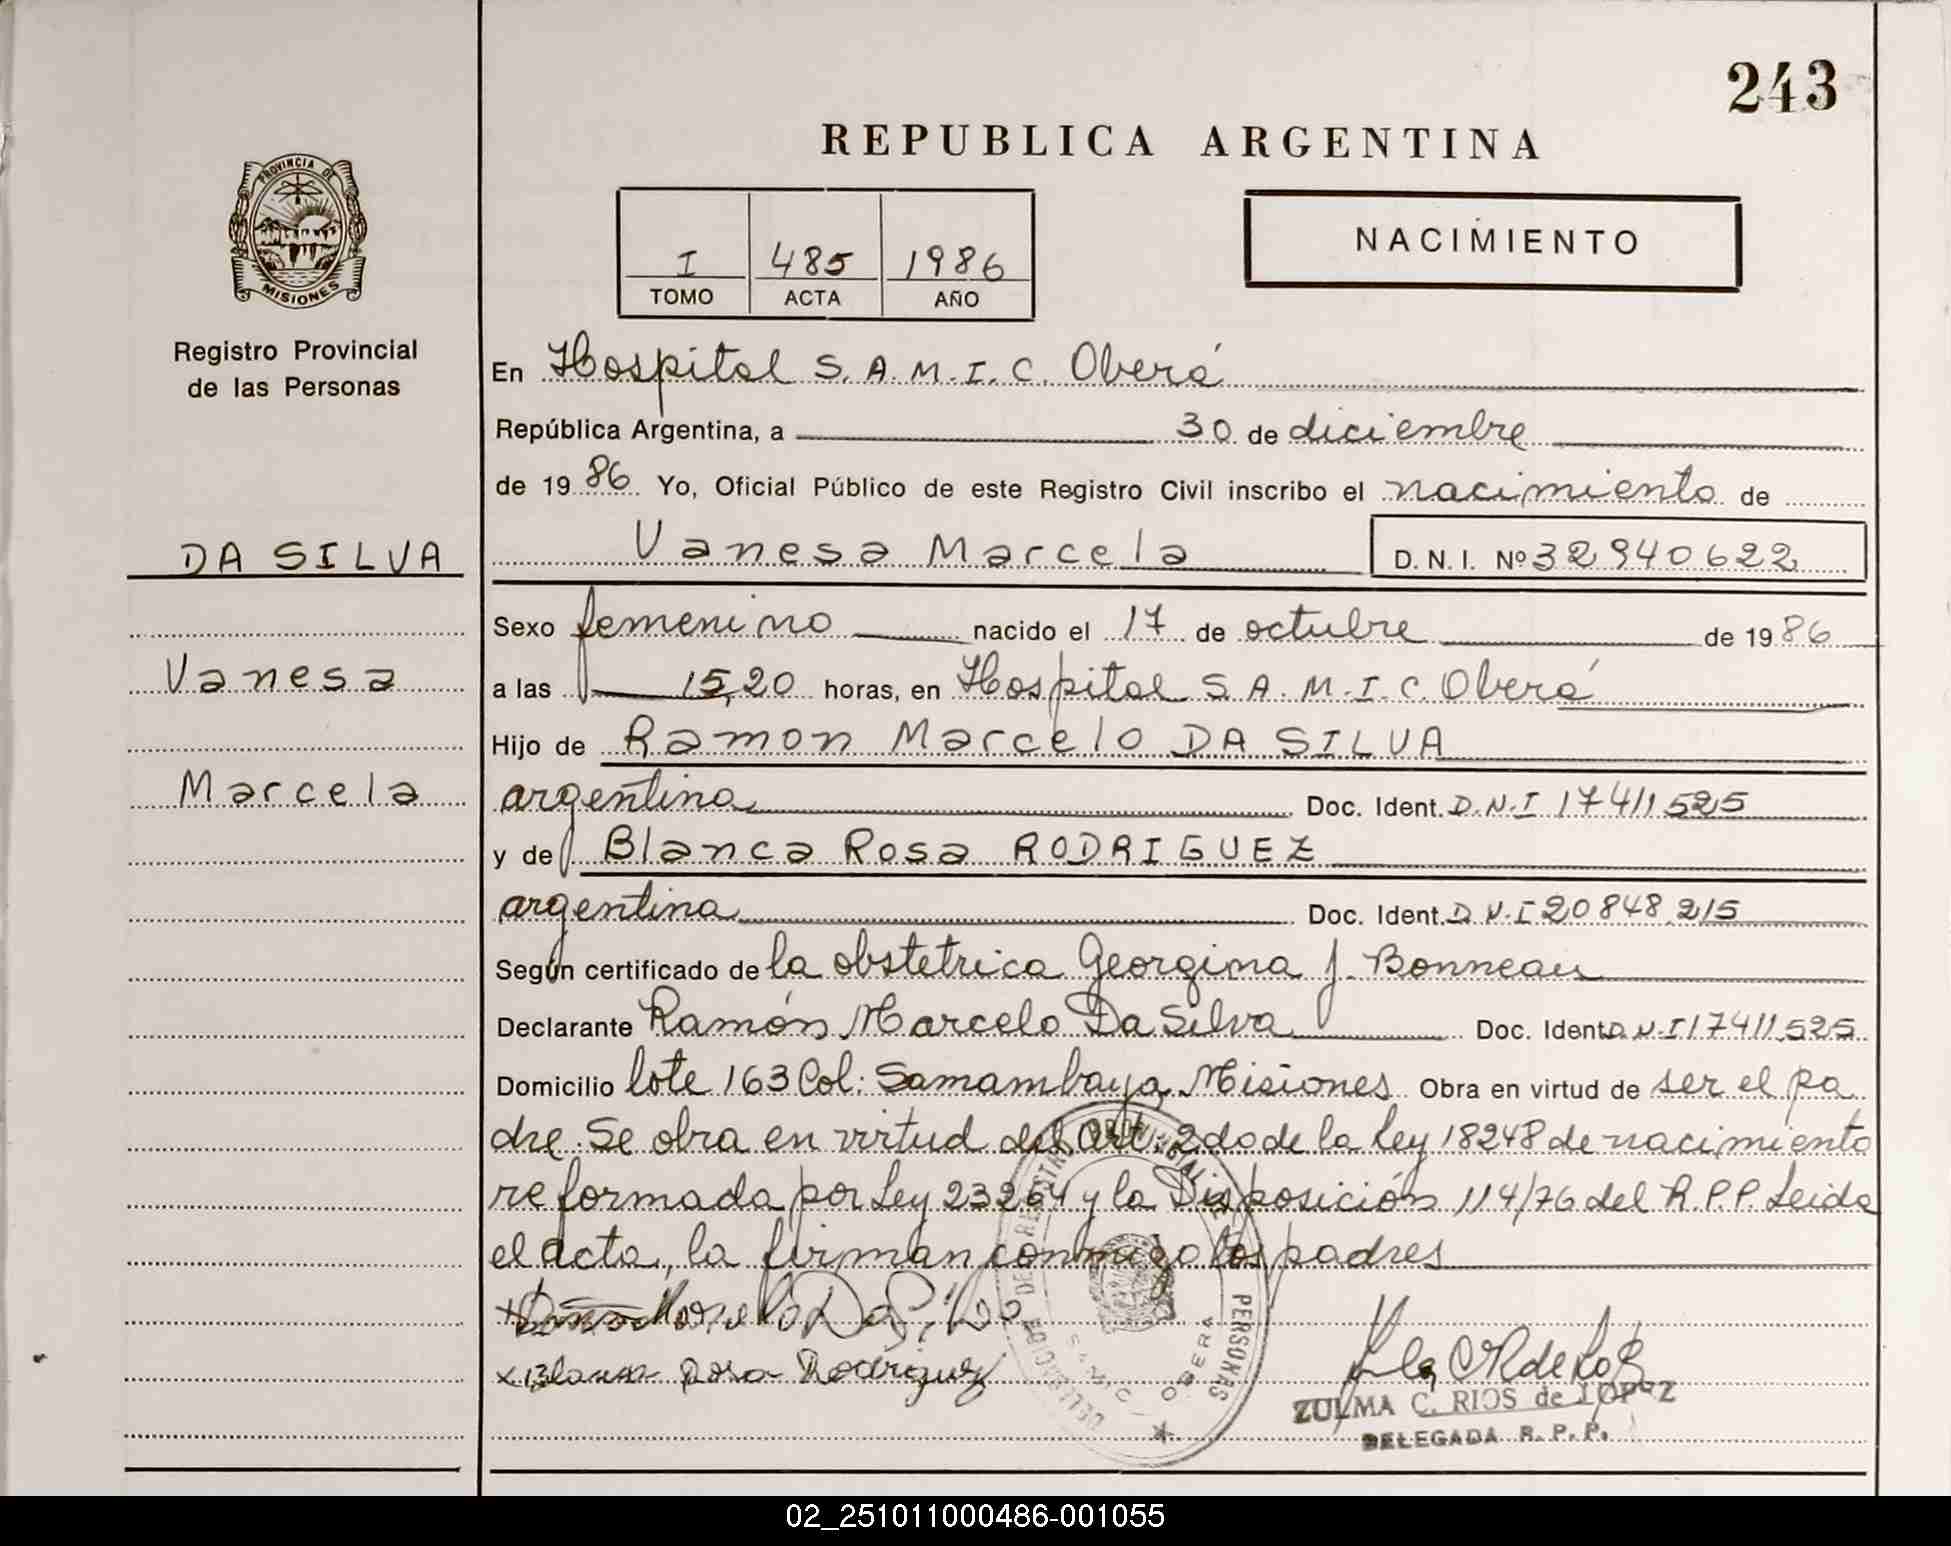 243
REPUBLICA ARGENTINA
PROVINCIA DE
MISIONES
Registro Provincial
de las Personas
I 485 1986
TOMO ACTA AÑO
NACIMIENTO
En Hospital S.A.M.I.C. Oberá
República Argentina, a 30 de diciembre
de 1986 Yo, Oficial Público de este Registro Civil inscribo el nacimiento de
DA SILVA
Vanesa Marcela D.N.I. Nº 32940622
Sexo femenino nacido el 17 de octubre de 1986
Vanesa
a las 15,20 horas, en Hospital S.A.M.I.C. Oberá
Hijo de Ramon Marcelo DA SILVA
Marcela
argentina Doc. Ident. D.N.I 17411525
y de Blanca Rosa RODRIGUEZ
argentina Doc. Ident. D.N.I 20848215
Según certificado de la obstetrica Georgina J. Bonneau
Declarante Ramón Marcelo Da Silva Doc. Ident. D.N.I 17411525
Domicilio lote 163 Col: Samambaya, Misiones Obra en virtud de ser el pa
dre. Se obra en virtud del Art: 2do de la Ley 18248 de nacimiento
reformada por Ley 23264 y la Disposición 114/76 del R.P.P. Leida
el acta, la firman conmigo los padres
Marcelo Da Silva
x Blanca Rosa Rodriguez
PERSONAS
OBERA
ZULMA C. RIOS de LOPEZ
DELEGADA R. P. P.
02_251011000486-001055